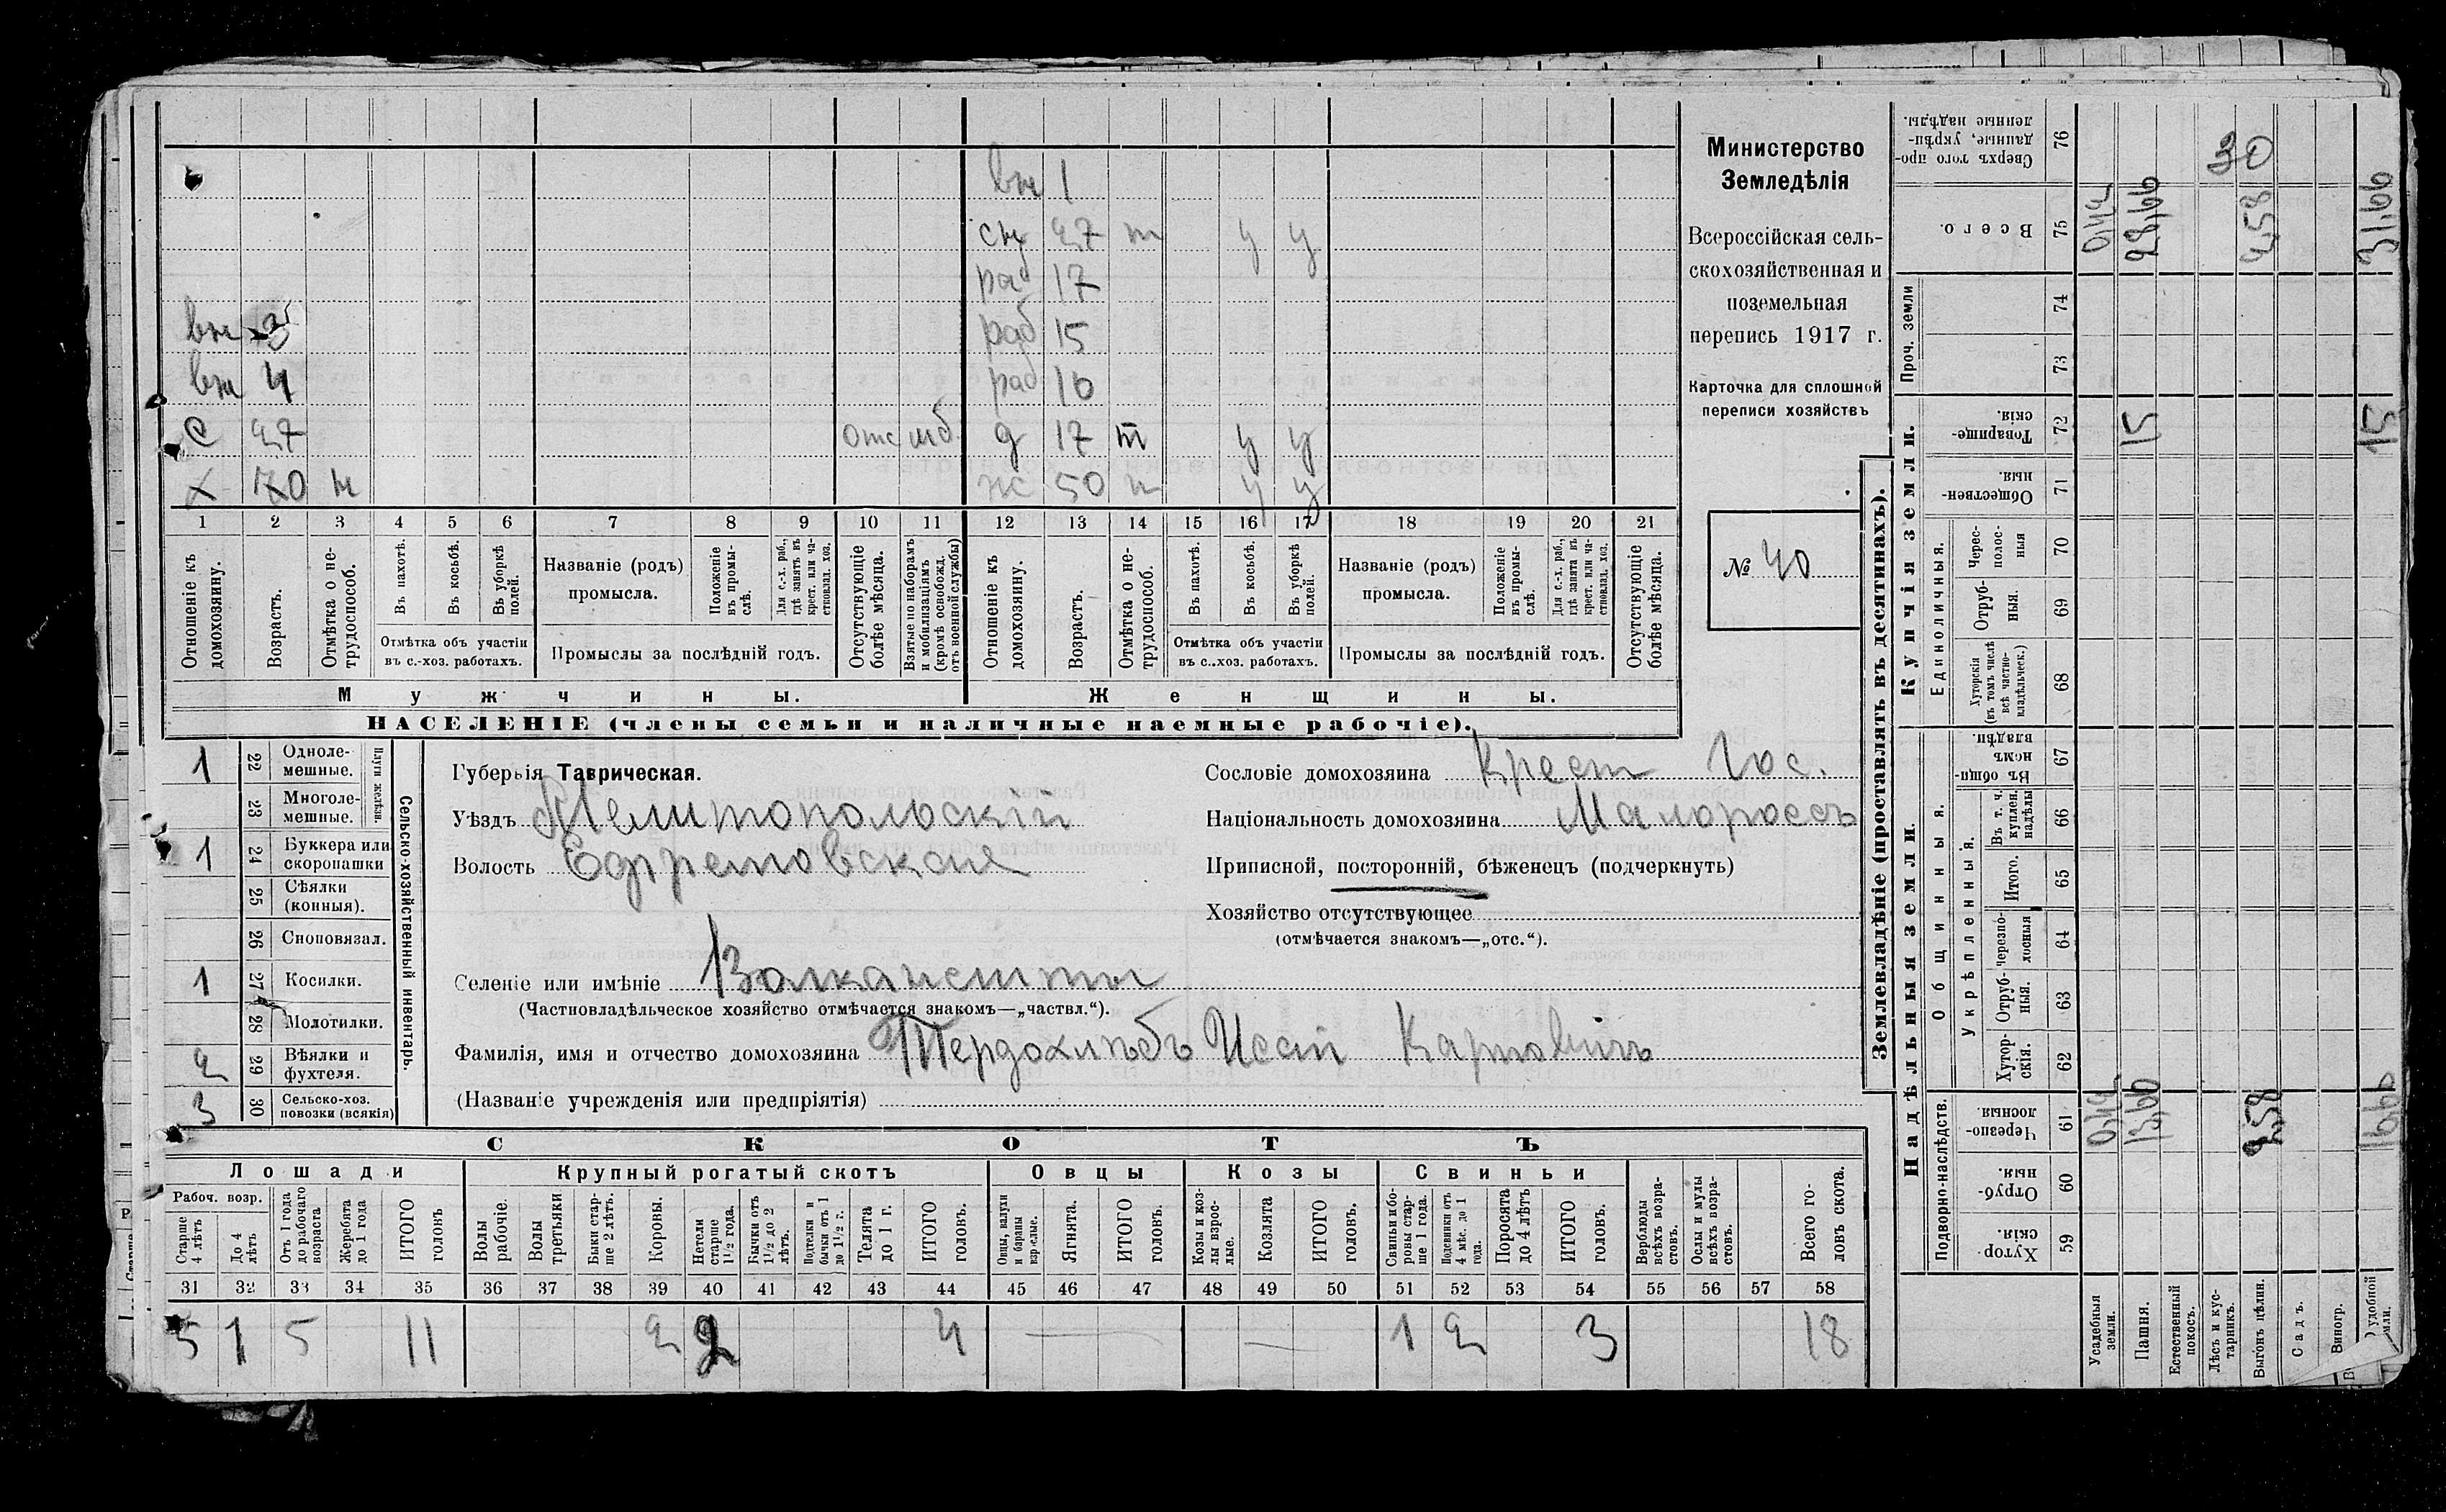 Министерство
Земледѣлія
Всероссійская сель-
скохозяйственная и
поземельная
перепись 1917 г.
Карточка для сплошной
переписи хозяйствъ
№ 40
вн 1
сн 27 п у у
раб 17
вн 3 раб 15
вн 4 раб 16
с 27 отс моб. д 17 п у у
х 70 н ж 50 п у у
1 2 3 4 5 6 7 8 9 10 11 12 13 14 15 16 17 18 19 20 21
Отношеніе къ домохозяину.
Возрастъ.
Отмѣтка о не-трудоспособ.
Въ пахотѣ.
Въ косьбѣ.
Въ уборкѣ полей.
Отмѣтка объ участіи
въ с.-хоз. работахъ.
Названіе (родъ)
промысла.
Положеніе въ промы-слѣ.
Для с.-х. раб., гдѣ занятъ въ крест. или ча-стновлад. хоз.
Промыслы за послѣдній годъ.
Отсутствующіе болѣе мѣсяца.
Взятые по наборамъ и мобилизаціямъ (кромѣ освобожд. отъ военной службы)
Отношеніе къ домохозяину.
Возрастъ.
Отмѣтка о не-трудоспособ.
Въ пахотѣ.
Въ косьбѣ.
Въ уборкѣ полей.
Отмѣтка объ участіи
въ с.-хоз. работахъ.
Названіе (родъ)
промысла.
Положеніе въ промы-слѣ.
Для с.-х. раб., гдѣ занята въ крест. или ча-стновлад. хоз.
Промыслы за послѣдній годъ.
Отсутствующіе болѣе мѣсяца.
Мужчины. Женщины.
НАСЕЛЕНІЕ (члены семьи и наличные наемные рабочіе).
1 22 Одноле-мешные.
23 Многоле-мешные.
Плуги желѣзн.
1 24 Буккера или скоропашки
25 Сѣялки (конныя).
26 Сноповязал.
1 27 Косилки.
28 Молотилки.
2 29 Вѣялки и фухтеля.
3 30 Сельско-хоз. повозки (всякія)
Сельско-хозяйственный инвентарь.
Губернія Таврическая.
Уѣздъ Мелитопольскій
Волость Ефремовская
Селеніе или имѣніе
(Частновладѣльческое хозяйство отмѣчается знакомъ—„частвл.“).
Фамилія, имя и отчество домохозяина Тердохлѣбъ Исай Карповичъ
(Названіе учрежденія или предпріятія)
Сословіе домохозяина Крест Гос.
Національность домохозяина Малороссъ
Приписной, посторонній, бѣженецъ (подчеркнуть)
Хозяйство отсутствующее
(отмѣчается знакомъ—„отс.“).
СКОТЪ
Лошади Крупный рогатый скотъ Овцы Козы Свиньи
Рабоч. возр.
Старше 4 лѣтъ
До 4 лѣтъ
Отъ 1 года до рабочаго возраста
Жеребята до 1 года
ИТОГО головъ
Волы рабочіе.
Волы третьяки
Быки стар-ше 2 лѣтъ.
Коровы.
Нетели старше 1½ года.
Бычки отъ 1½ до 2 лѣтъ.
Подтелки и бычки отъ 1 до 1½ г.
Телята до 1 г.
ИТОГО головъ.
Овцы, валухи и бараны взрослые.
Ягнята.
ИТОГО головъ.
Козы и коз-лы взрос-лые.
Козлята
ИТОГО головъ.
Свиньи и бо-ровы стар-ше 1 года.
Подсвинки отъ 4 мѣс. до 1 года.
Поросята до 4 лѣтъ
ИТОГО головъ.
Верблюды всѣхъ возра-стовъ.
Ослы и мулы всѣхъ возра-стовъ.
Всего го-ловъ скота.
31 32 33 34 35 36 37 38 39 40 41 42 43 44 45 46 47 48 49 50 51 52 53 54 55 56 57 58
5 1 5 11 2 2 4 — — 1 2 3 18
Землевладѣніе (проставлять въ десятинахъ).
Купчія земли.
Надѣльныя земли.
Проч. земли
Единоличныя.
Общинныя.
Укрѣпленныя.
Подворно-наслѣдств.
Сверхъ того про-данные, укрѣп-ленные надѣлы. 76 30
Всего. 75 0,42 28,66 2,58 31,66
74
73
Товарище-скія. 72 15 15
Обществен-ныя 71
Черес-полос-ныя 70
Отруб-ныя. 69
Хуторскія (въ томъ числѣ всѣ частно-владѣльческ.) 68
Въ общин-номъ владѣн. 67
Въ т. ч. куплен. надѣлы 66
Итого. 65
Черезпо-лосныя 64
Отруб-ныя. 63
Хутор-скія. 62
Черезпо-лосныя. 61 0,42 13,66 2,58 16,66
Отруб-ныя. 60
Хутор-скія. 59
Усадебныя земли.
Пашня.
Естественный покосъ.
Лѣсъ и кус-тарникъ.
Выгонъ цѣлин.
Садъ.
Виногр.
удобной